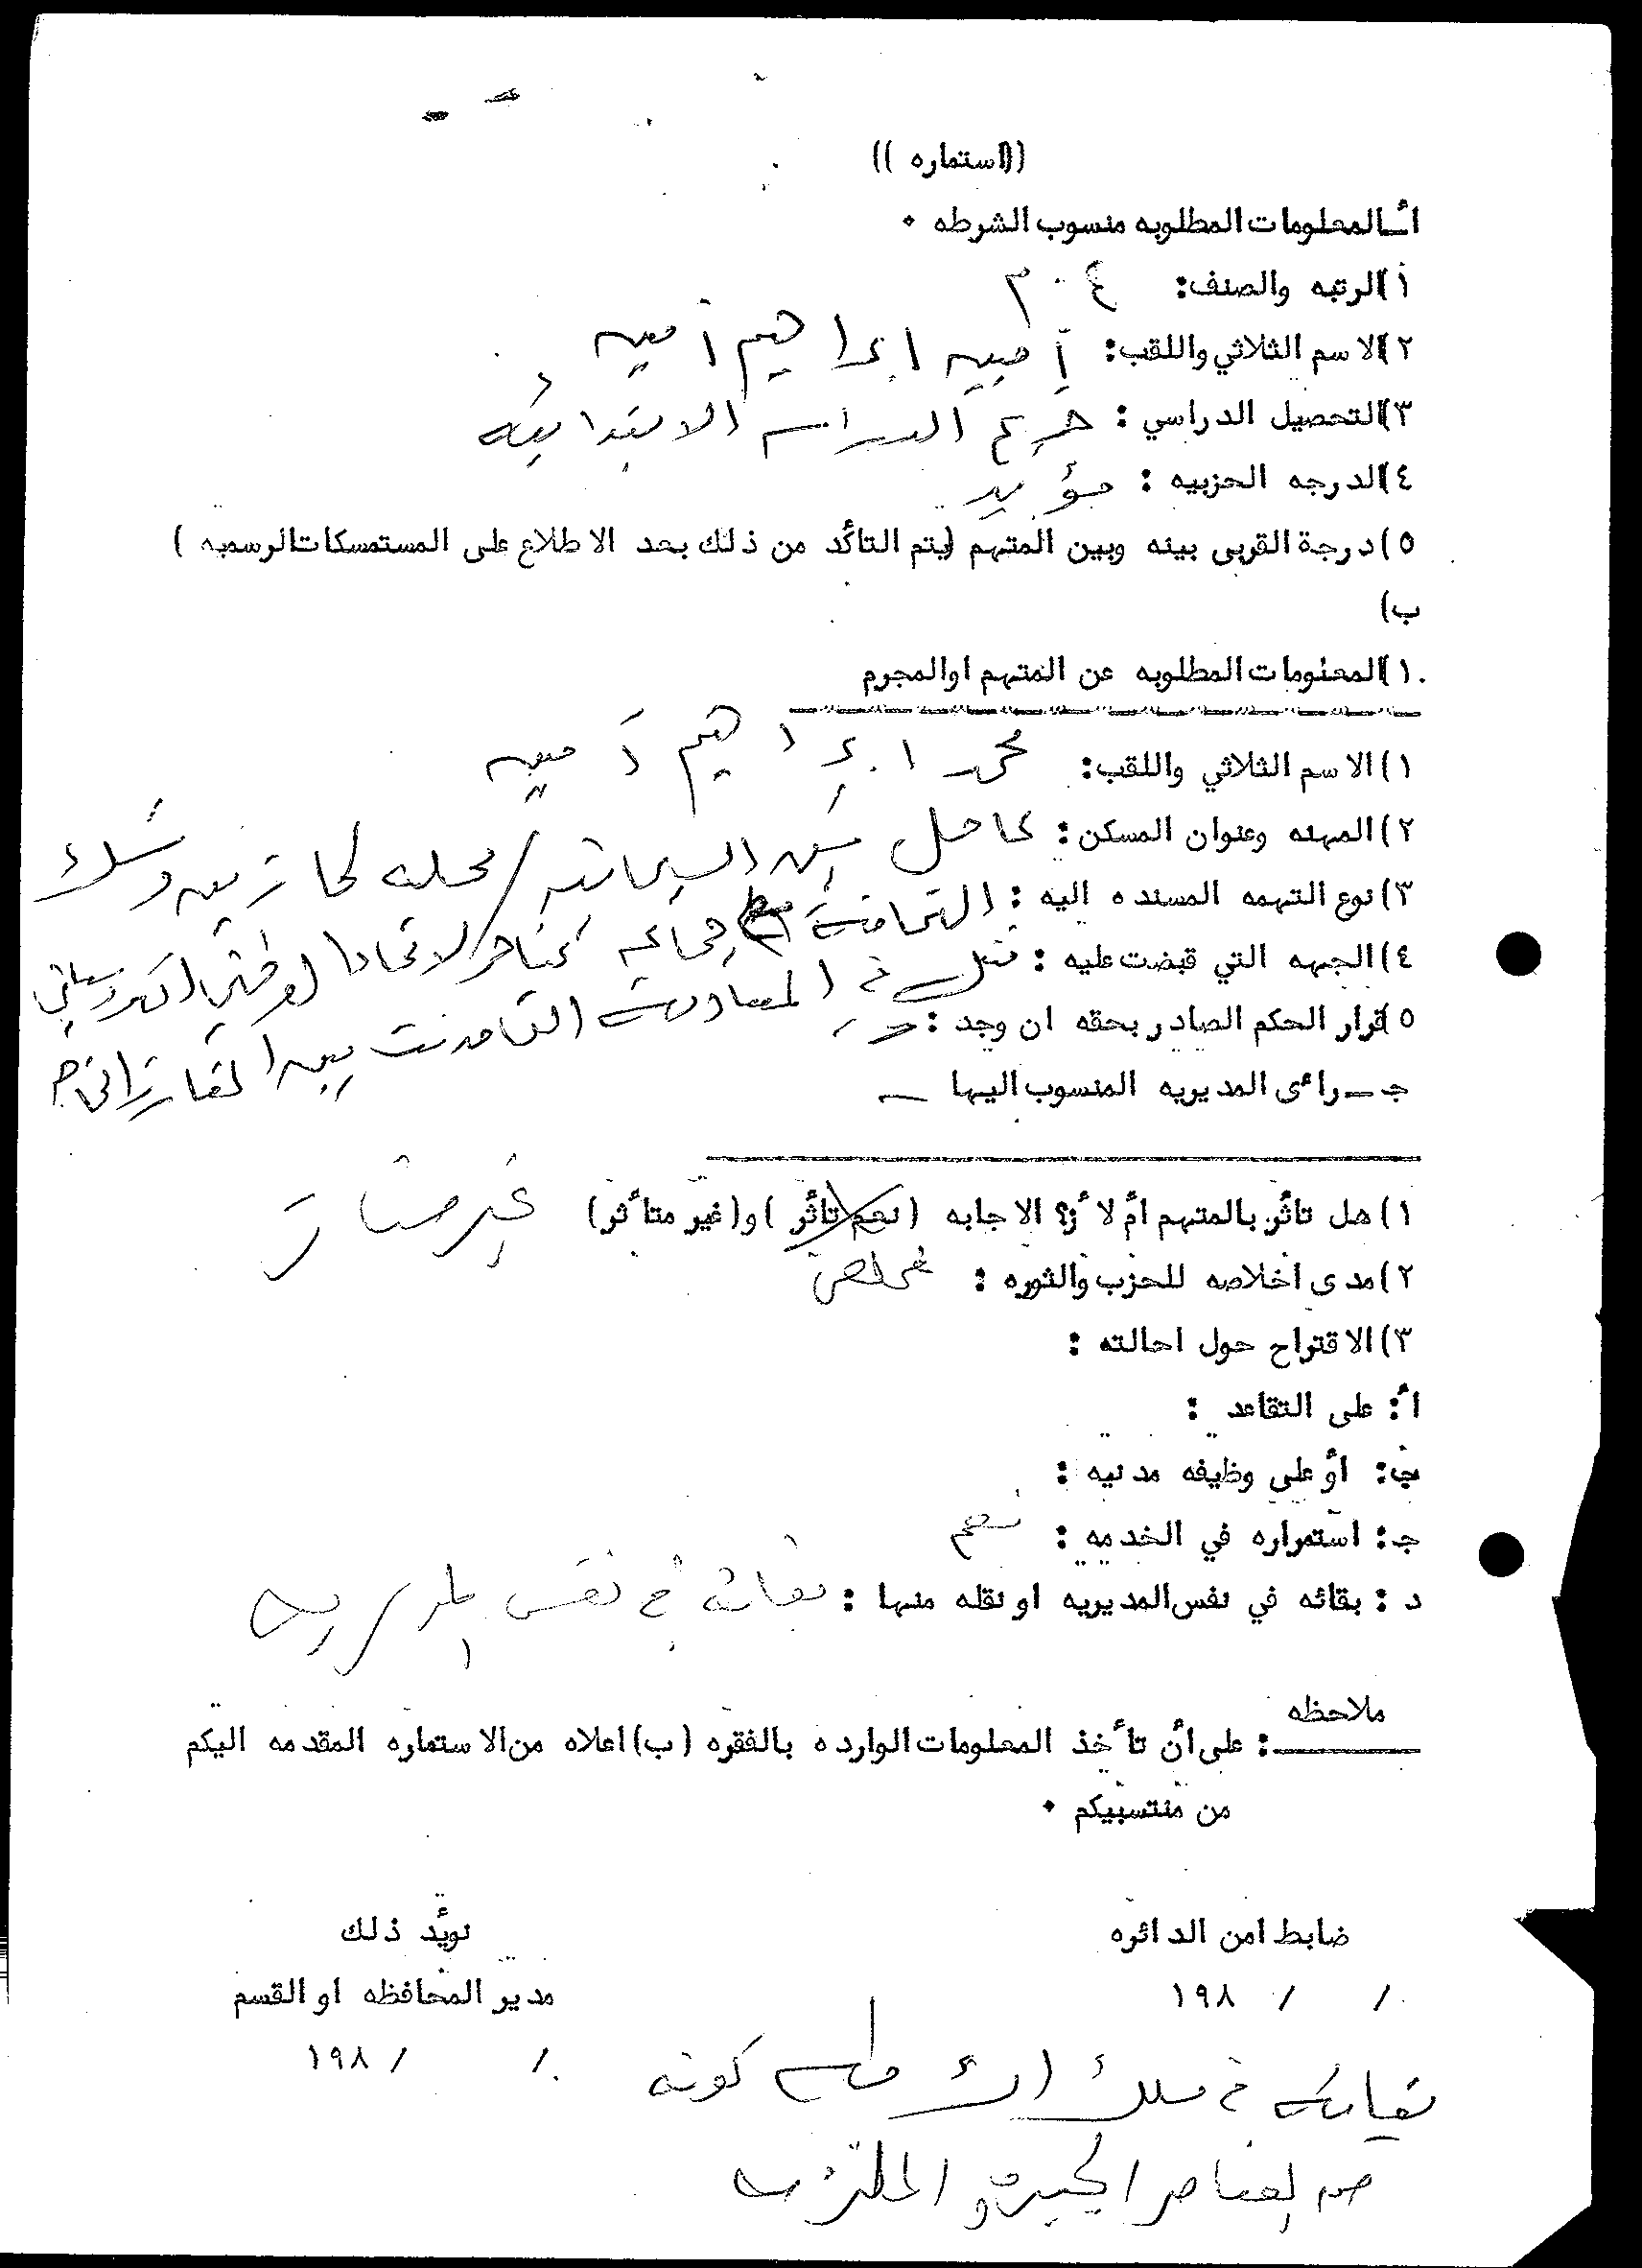 ((استماره ))
أـالمعلومات المطلوبه منسوب الشرطه ٠
١)الرتبه والصنف: ع ٠ م
٢)الاسم الثلاثي واللقب: أمين ابراهيم أمين
٣)التحصيل الدراسي : خريج الدراسه الابتدائيه
٤)الدرجه الحزبيه : مؤيد
٥)درجة القربى بينه وبين المتهم (يتم التأكد من ذلك بعد الاطلاع على المستمسكات الرسميه )
ب)
١.)المعلومات المطلوبه عن المتهم اوالمجرم
١)الاسم الثلاثي واللقب: محمد ابراهيم أمين
٢)المهنه وعنوان المسكن: عامل يسكن السليمانيه / محله
٣)نوع التهمه المسنده اليه :
٤)الجهه التي قبضت عليه : قتل في
٥)قرار الحكم الصادر بحقه ان وجد :
جـ ـ رأى المديريه المنسوب اليها ـ
١)هل تأثر بالمتهم أم لا ؟ الاجابه (نعم تأثر )و(غير متأثر) غير متأثر
٢)مدى اخلاصه للحزب والثوره : مخلص
٣)الاقتراح حول احالته :
أ: على التقاعد :
ب: أو على وظيفه مدنيه :
جـ: استمراره في الخدمه : نعم
د : بقائه في نفس المديريه او نقله منها : بقائه في نفس المديريه
ملاحظه
: على أن تأخذ المعلومات الوارده بالفقره (ب) اعلاه من الاستماره المقدمه اليكم
من منتسبيكم ٠
ضابط امن الدائره
نويد ذلك
مدير المحافظه او القسم
/ / ١٩٨
/ / ١٩٨
بقائه في سلك الشرطه كونه
من العناصر الجيده و الملتزمه